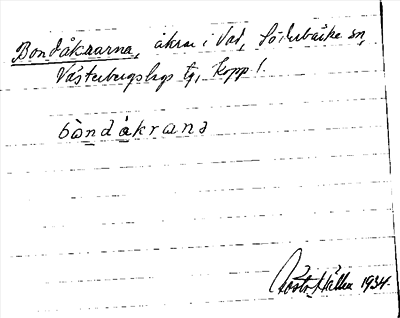 Bondåkrarna, åkrar i Vad, Söderbärke sn,
Västerbergslags tg, Kopp. l.
bòndåkrana
Gösta Hälla 1934.